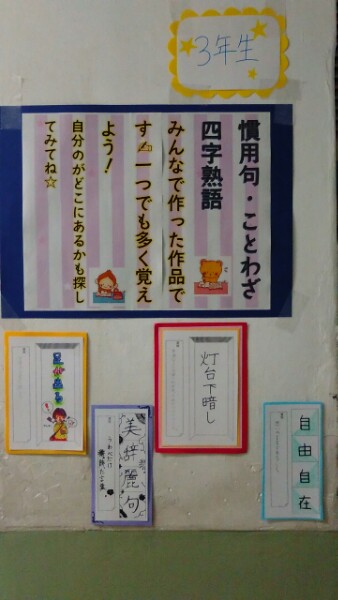 3年生
慣用句・ことわざ
四字熟語
みんなで作った作品で
す✍一つでも多く覚え
よう！
自分のがどこにあるかも探し
てみてね☆
灯台下暗し
美辞麗句
自由自在